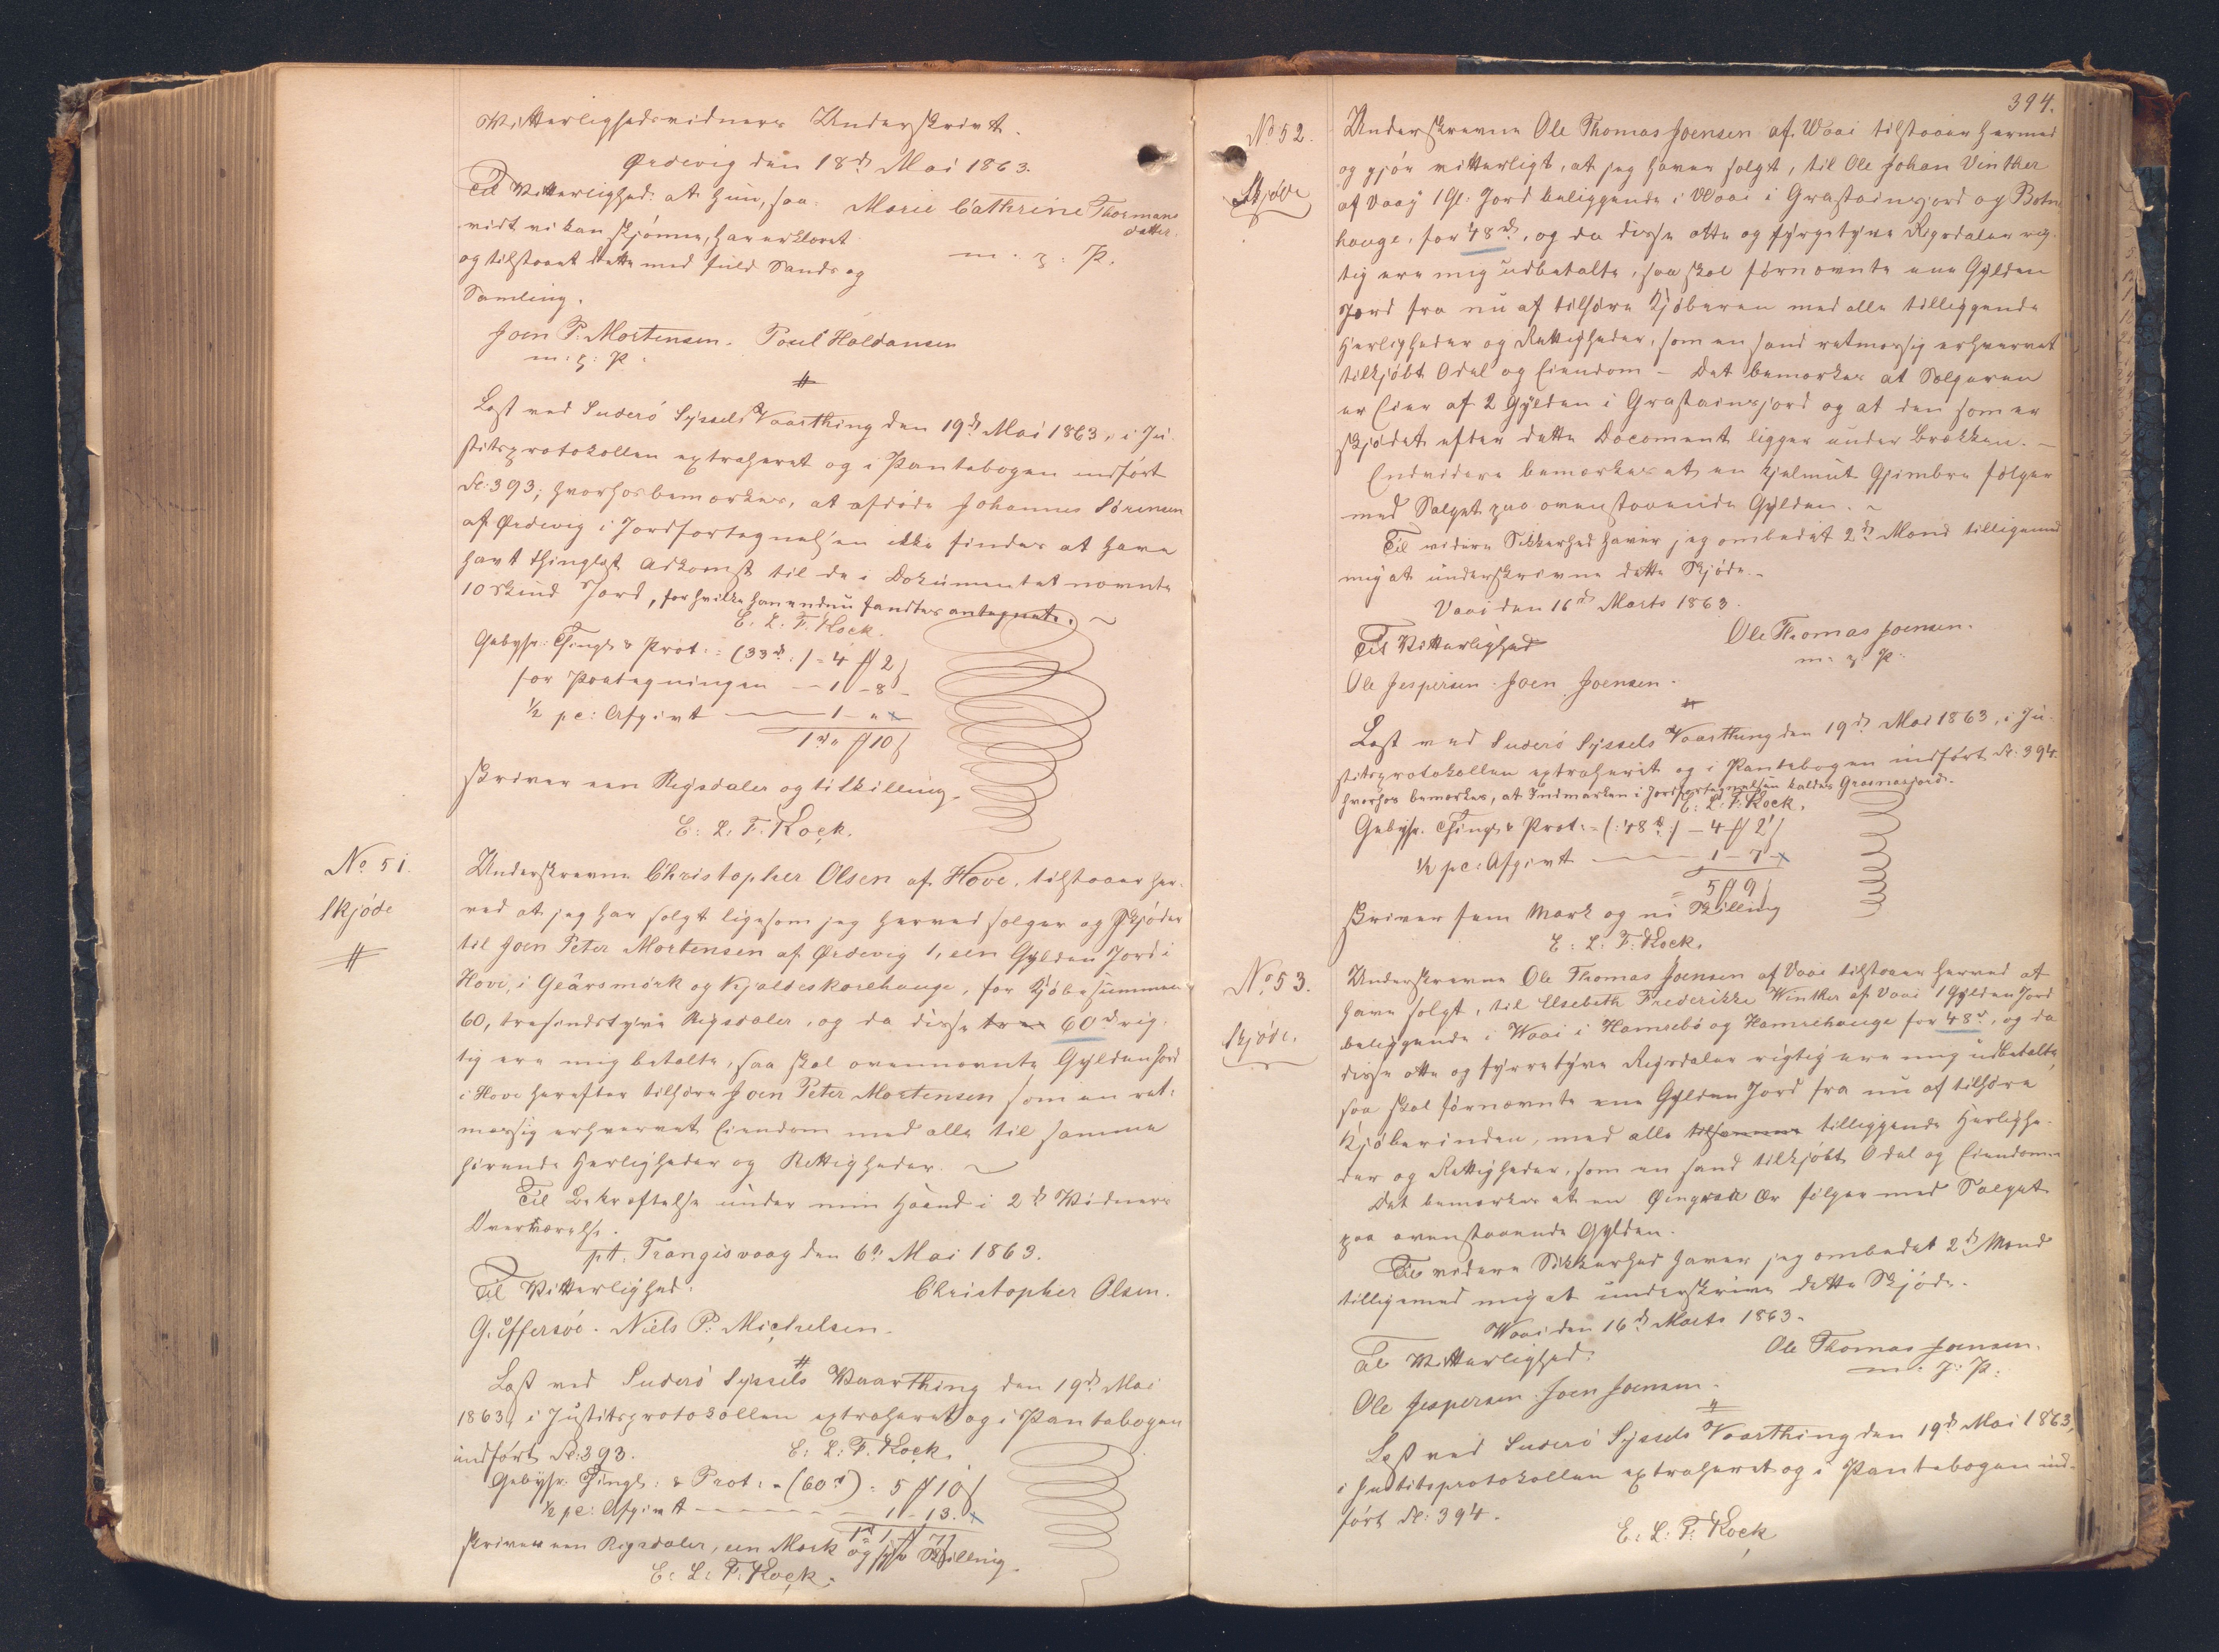 Vitterlighedsvidners Underskrivt.
Ørdevig den 18d Mai 1863.
Til Vitterlighed: at hun, saa-
vidt vi kan skjönne, har erklæret
og tilstaaet dette med fuld Sands og
Samling.
Marie Cathrine Thormans
datter.
m. z. P.
Joen P. Mortensen. Poul Haldansen
m: z: P:
Læst ved Suderö Syssels Vaarthing den 19d Mai 1863, i Ju-
stitsprotokollen extraheret og i Pantebogen indfört
Fol: 393; hvorhos bemærkes, at afdøde Johannes Sörensen
af Ørdevig i Jordfortegnelsen ikke findes at have
havt thinglæst Adkomst til de i Dokumentet nævnte
10 Skind Jord, for hvilke han endnu fandtes antegnet.
E. L. F. Kock.
Gebyhr: Thingl & Prot: = (33d:) = 4 # 2 ß
for Paategningen — 1 - 8 -
½ pc: Afgivt — 1 - "
1rd " # 10 ß
skriver een Rigsdaler og ti Skilling.
E: L: F. Kock.
No 51.
Skjöde
Underskrevne Christopher Olsen af Hove, tilstaaer her-
ved at jeg har solgt ligesom jeg herved sælger og Skjöder
til Joen Peter Mortensen af Ørdevig 1, een Gylden Jord i
Hove, i Geärsmörk og Kjaldeskorehauge, for Kjöbesummen
60, tresindstyve Rigsdaler, og da disse tres 60d rig-
tig ere mig betalte, saa skal ovennævnte Gylden Jord
i Hove herefter tilhöre Joen Peter Mortensen som en ret-
mæssig erhvervet Eiendom med alle til samme
hörende Herligheder og Rettigheder.
Til Bekræftelse under min Haand i 2de Vidners
Overværelse.
pt. Trangisvaag den 6te Mai 1863.
Til Vitterlighed.
Christopher Olsen.
G. Effersöe. Niels P. Michelsen.
Læst ved Suderö Syssels Vaarthing den 19d Mai
1863, i Justitsprotokollen extraheret og i Pantebogen
indfört Fol: 393. E: L: F. Kock.
Gebyhr. Thingl: & Prot: = (60d) = 5 # 10 ß
½ pc: Afgivt — 1 - 13.
1rd 1 # 7 ß
skriver een Rigsdaler, een Mark og syv Skilling.
E: L: F: Kock.
394.
No 52.
Skjöde
Underskrevne Ole Thomas Joensen af Waai tilstaaer hermed
og gjör vitterligt, at jeg haver solgt, til Ole Johan Vinther
af Vaag 1 Gl: Jord beliggende i Waai i Grastainsjord og Botn-
hauge, for 48rd, og da disse otte og fyrgetyve Rigsdaler rig-
tig ere mig udbetalte, saa skal förnævnte ene Gylden
Jord fra nu af tilhöre Kjöberen med alle tilliggende
Herligheder og Rettigheder, som en sand retmæssig erhvervet
tilkjöbt Odel og Eiendom - Det bemærkes at Sælgeren
er Eier af 2 Gylden i Grastainsjord og at den som er
skjödet efter dette Document ligger under Brækken. —
Endvidere bemærkes at en Gjimbre fölger
med Salget paa ovenstaaende Gylden.
Til videre Sikkerhed haver jeg ombedet 2de Mænd tilligemed
mig at underskrivne dette Skjöde.-
Vaai den 16d Marts 1863.
Til Vitterlighed
Ole Thomas Joensen.
m: z: P:
Ole Jespersen. Joen Joensen.
Læst ved Suderö Syssels Vaarthing den 19d Mai 1863, i Ju-
stitsprotokollen extraheret og i Pantebogen indfört Fol: 394.
hvorhos bemærkes, at Indmarken i Jordfortegnelsen kaldes Grasnasjord.
E: L: F. Kock.
Gebyhr. Thingl & Prot: = (:48d:) — 4 # 2 ß
½ pc: Afgivt — 1 - 7 -
= 5 # 9 ß
skriver fem Mark og ni Skilling
E: L: F. Kock.
No 53.
Skjöde.
Underskrevne Ole Thomas Joensen af Vaai tilstaaer herved at
have solgt, til Elsebeth Frederikke Winther af Vaai 1 Gylden Jord
beliggende i Waai i Hamrebö og Hamrehauge for 48d, og da
disse otte og fyrretyve Rigsdaler rigtig ere mig udbetalte,
saa skal förnævnte ene Gylden Jord fra nu af tilhöre
Kjöberinden, med alle tilsamme tilliggende Herlighe-
der og Rettigheder, som en sand tilkjöbt Odel og Eiendom
Det bemærkes at en Ær fölger med Salget
paa ovenstaaende Gylden.
Til videre Sikkerhed haver jeg ombedet 2d Mænd
tilligemed mig at underskrive dette Skjöde.
Waai den 16d Marts 1863.
Til Vitterlighed:
Ole Thomas Joensen.
m: z: P:
Ole Jespersen. Joen Joensen.
Læst ved Suderö Syssels Vaarthing den 19d Mai 1863,
i Justitsprotokollen extraheret og i Pantebogen ind-
fört Fol: 394.
E: L: F: Kock